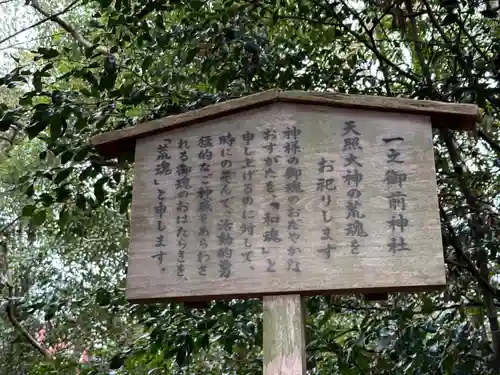 一之御前神社
天照大神の荒魂を
お祀りします
神様の御魂のおだやかな
おすがたを、「和魂」と
申し上げるのに対して、
時にのぞんで、活動的勇
猛的な、神威をあらわさ
れる御魂のおはたらきを、
「荒魂」と申します。